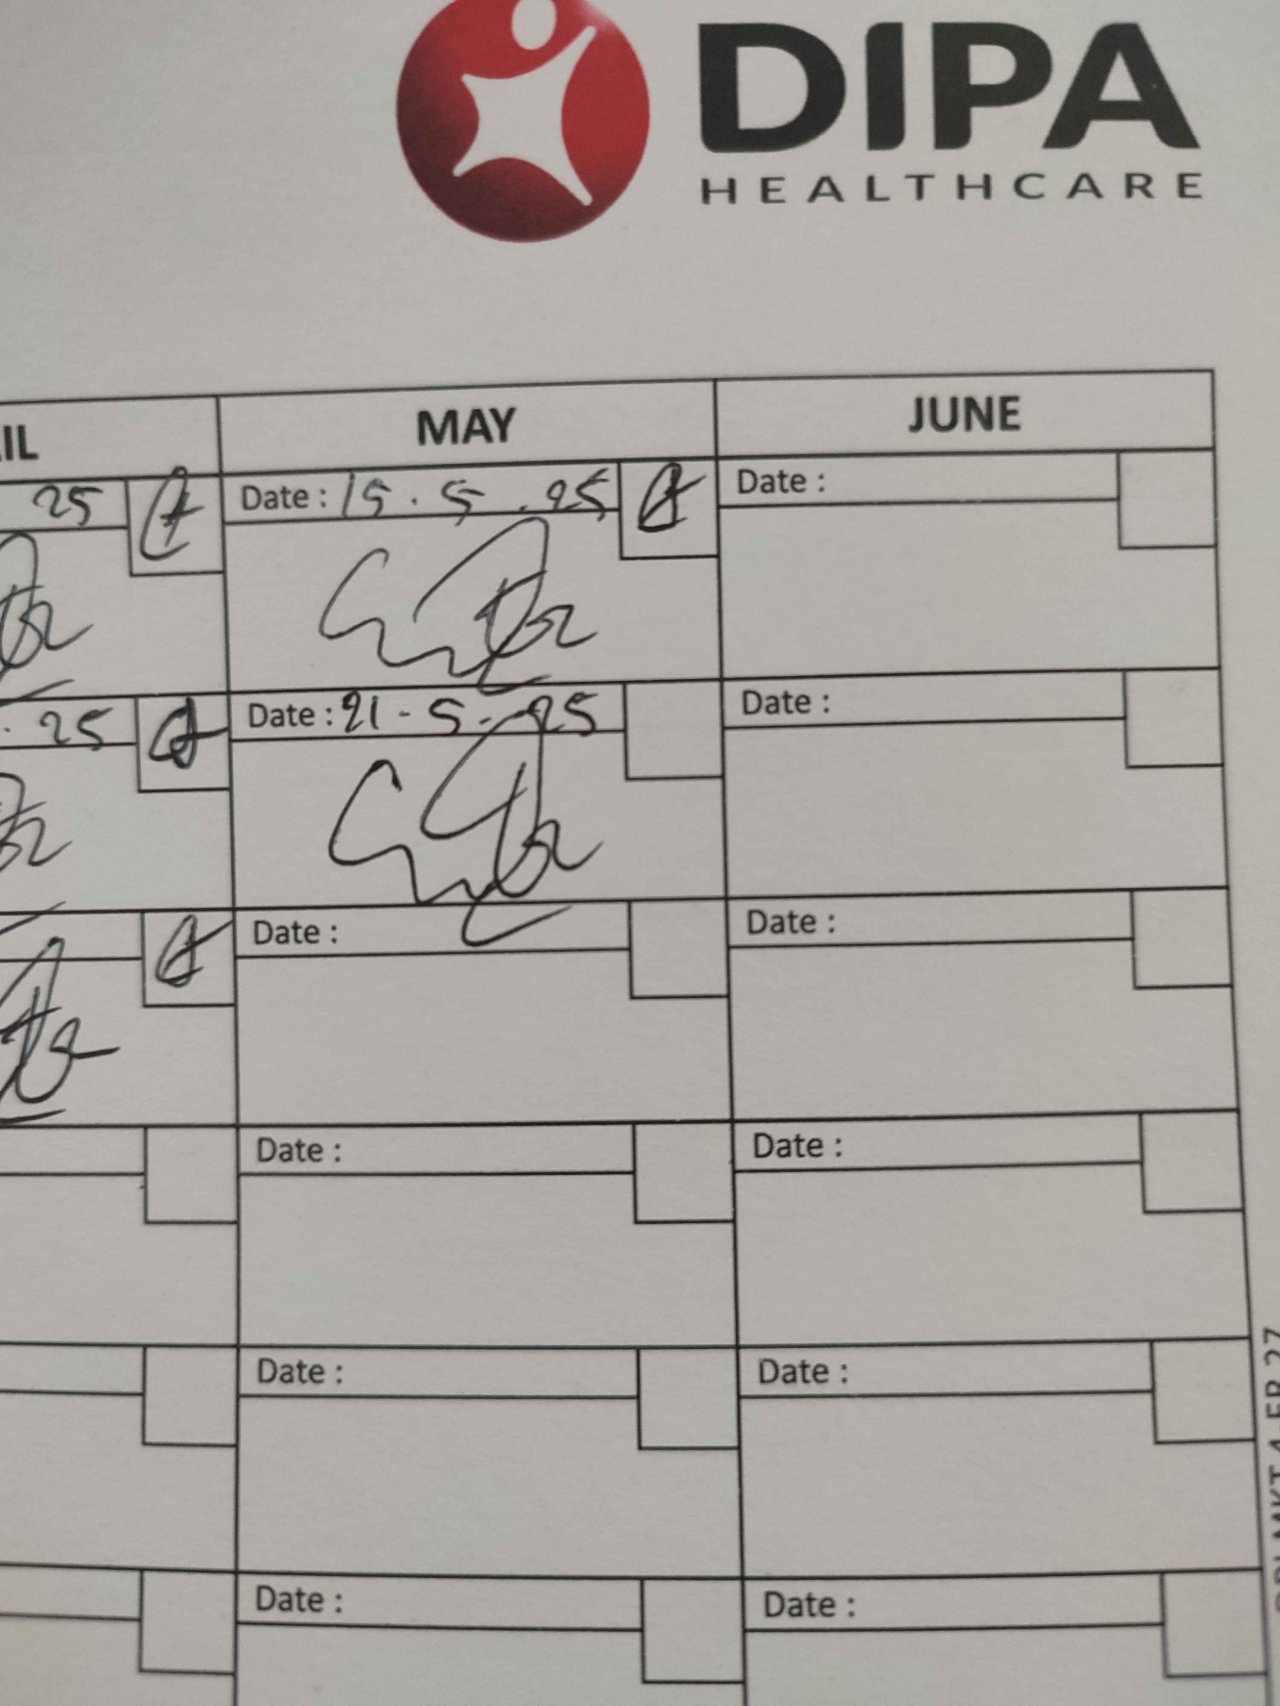 DIPA
HEALTHCARE
IL
MAY
JUNE
25
Date : 15.5.25
Date :
. 25
Date : 21-5-25
Date :
Date :
Date :
Date :
Date :
Date :
Date :
Date :
Date :